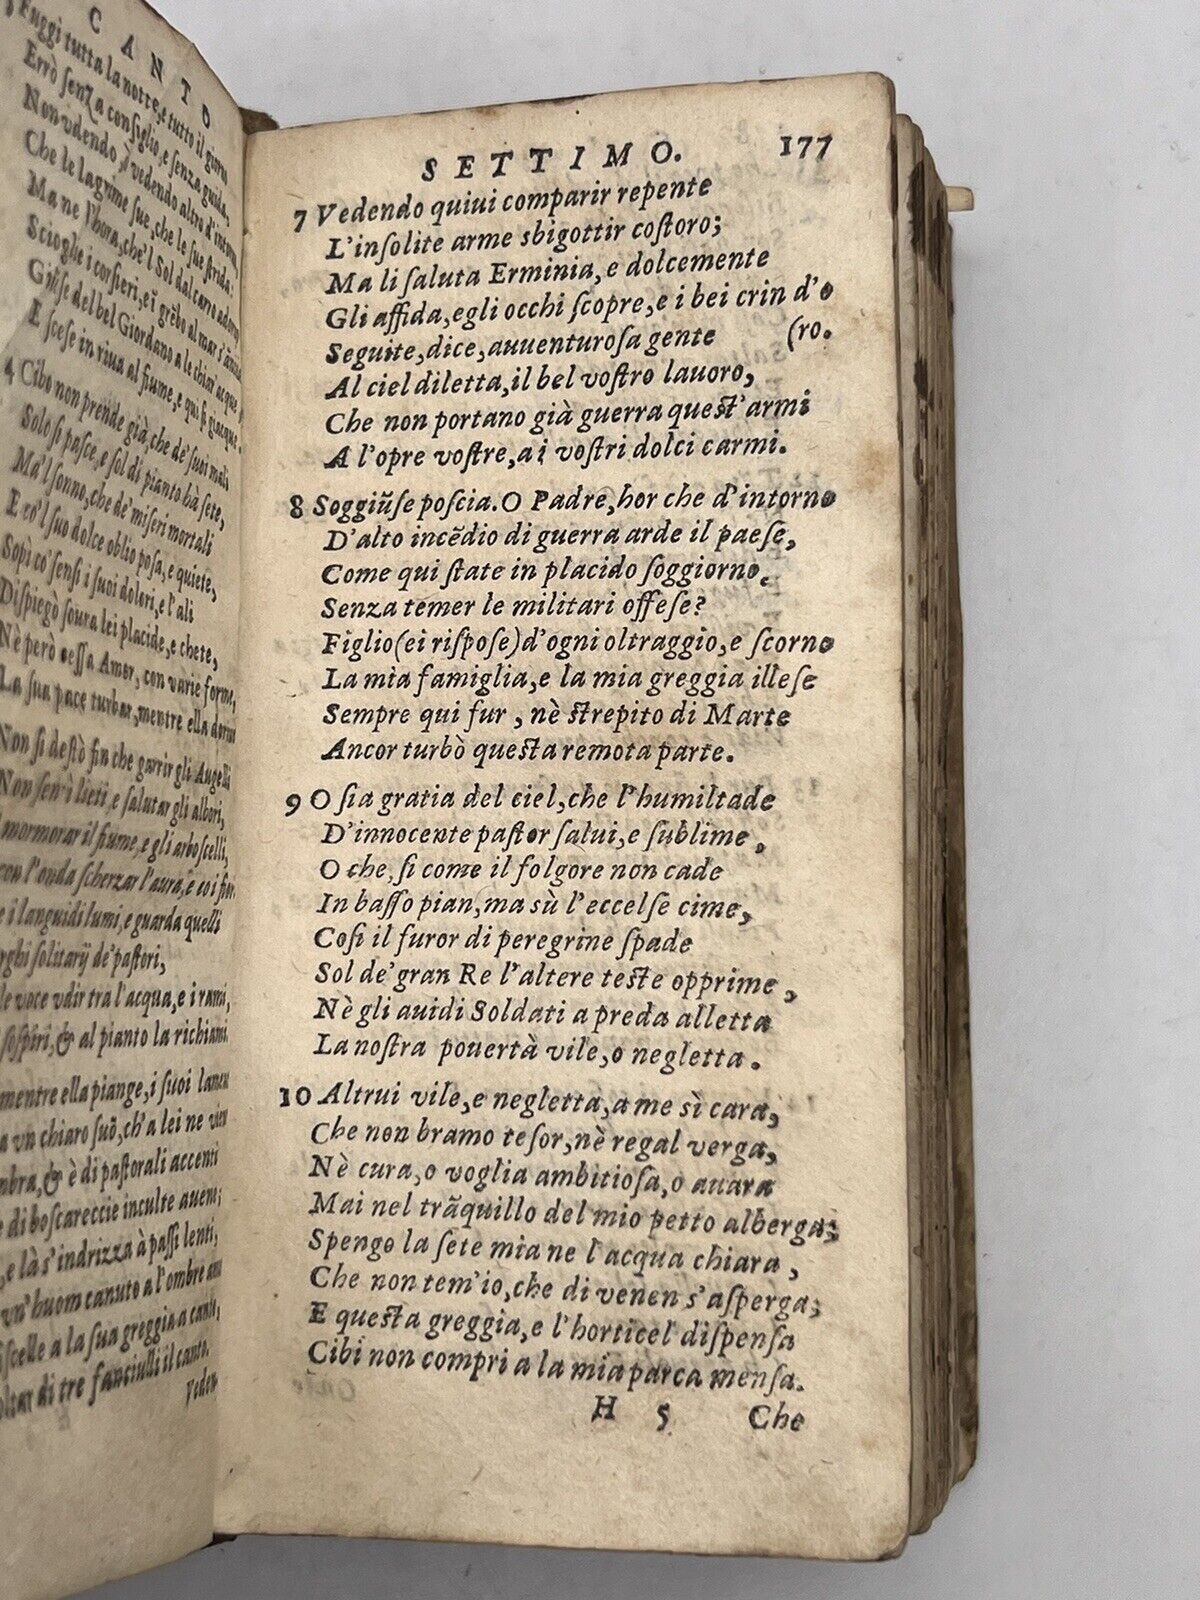 CANTO
Fuggì tutta la notte, e tutto il giorno
Errò ſenza conſiglio, e ſenza guida,
Non vdendo, ò vedendo altro d'intorno,
Che le lagrime ſue, che le ſue ſtrida:
Ma ne l'hora, che'l Sol dal carro adorno
Scioglie i corſieri, e ĩ grẽbo al mar s'ãnida
Giũſe del bel Giordano a le chiar' acque
E ſceſe in riua al fiume, e quì ſi giacque.
4 Cibo non prende già, che de' ſuoi mali
Solo ſi paſce, e ſol di pianto hà ſete,
Ma'l ſonno, che de' miſeri mortali
E co'l ſuo dolce oblio poſa, e quiete,
Sopì co' ſenſi i ſuoi dolori, e l'ali
Diſpiegò ſoura lei placide, e chete,
Nè però ceſſa Amor, con varie forme,
La ſua pace turbar, mentre ella dorme
Non ſi deſtò fin che garrir gli Augelli
Non ſentì lieti, e ſalutar gli albori,
mormorar il fiume, e gli arboſcelli,
con l'onda ſcherzar l'aura, e co i fior
i languidi lumi, e guarda quelli
ſolitarij de' paſtori,
voce vdir tra l'acqua, e i rami,
ſoſpiri, & al pianto la richiami.
mentre ella piange, i ſuoi lamen
vn chiaro ſuõ, ch'a lei ne vien
& è di paſtorali accenti
di boſcareccie inculte auene;
e là s'indrizza à paſſi lenti,
vn' huom canuto a l'ombre am
a la ſua greggia a canto,
di tre fanciulli il canto.
Veden
SETTIMO. 177
7 Vedendo quiui comparir repente
L'inſolite arme sbigottir coſtoro;
Ma li ſaluta Erminia, e dolcemente
Gli affida, egli occhi ſcopre, e i bei crin d'o
Seguite, dice, auuenturoſa gente (ro.
Al ciel diletta, il bel voſtro lauoro,
Che non portano già guerra queſt'armi
A l'opre voſtre, a i voſtri dolci carmi.
8 Soggiũſe poſcia. O Padre, hor che d'intorno
D'alto incẽdio di guerra arde il paeſe,
Come qui ſtate in placido ſoggiorno,
Senza temer le militari offeſe?
Figlio (ei riſpoſe) d'ogni oltraggio, e ſcorno
La mia famiglia, e la mia greggia illeſe
Sempre qui fur, nè ſtrepito di Marte
Ancor turbò queſta remota parte.
9 O ſia gratia del ciel, che l'humiltade
D'innocente paſtor ſalui, e ſublime,
O che, ſi come il folgore non cade
In baſſo pian, ma sù l'eccelſe cime,
Coſi il furor di peregrine ſpade
Sol de' gran Re l'altere teſte opprime,
Nè gli auidi Soldati a preda alletta
La noſtra pouertà vile, o negletta.
10 Altrui vile, e negletta, a me sì cara,
Che non bramo teſor, nè regal verga,
Nè cura, o voglia ambitioſa, o auara
Mai nel trãquillo del mio petto alberga;
Spengo la ſete mia ne l'acqua chiara,
Che non tem'io, che di venen s'aſperga;
E queſta greggia, e l'horticel diſpenſa
Cibi non compri a la mia parca menſa.
H 5 Che